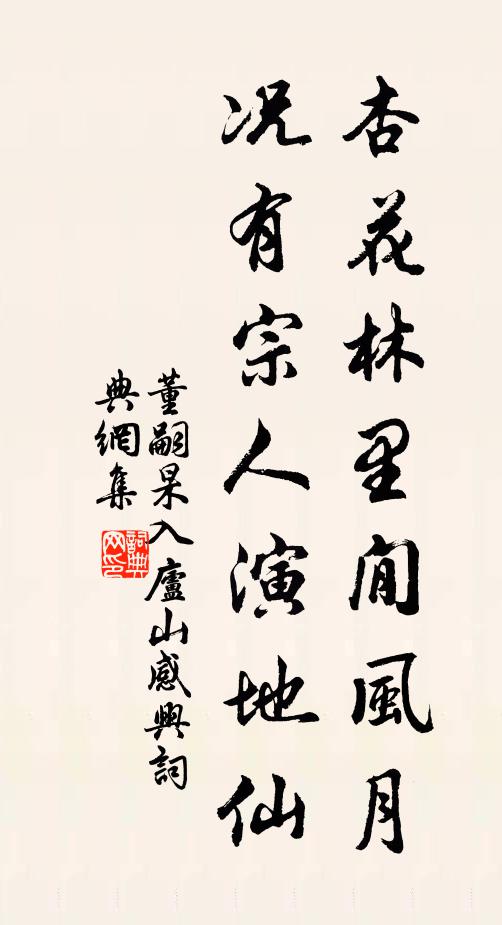 杏花林里閒風月
况有宗人演地仙
董嗣杲入廬山感興詞
典網集
詞典网印